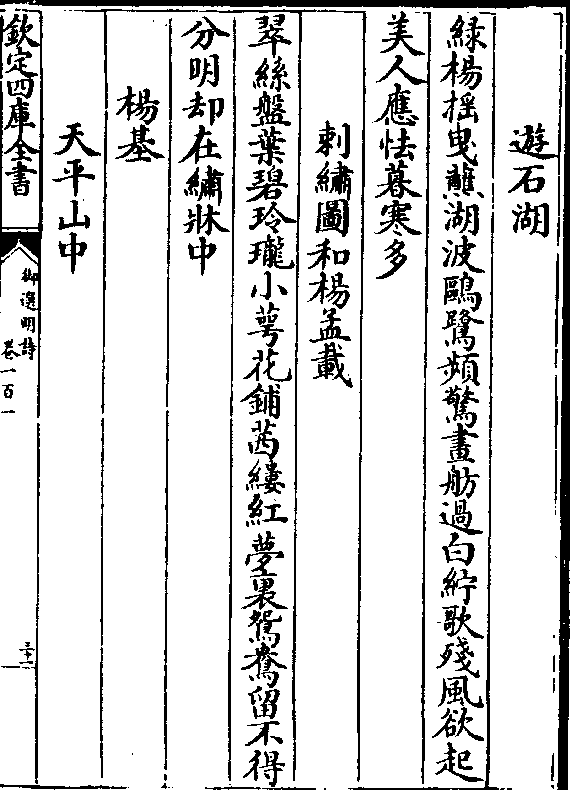 遊石湖
緑楊揺曳蘸湖波鷗鷺頻驚畫舫過白紵歌殘風欲起
美人應怯暮寒多
刺繡圖和楊孟載
翠絲盤葉碧玲瓏小萼花鋪茜縷紅夢裏鴛鴦留不得
分明却在繡牀中
楊基
天平山中
欽定四庫全書
御選明詩
卷一百一